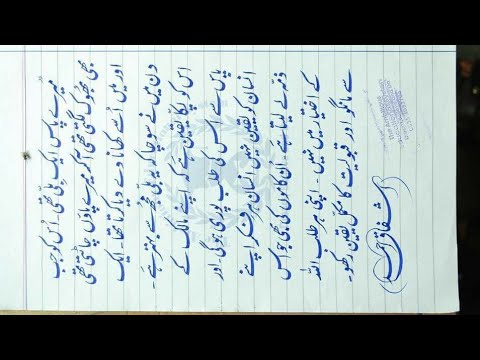 میرے پاس ایک بلی تھی، اُس کو جب
بھی بھوک لگتی تھی آکر میرے پاؤں چاٹتی تھی
اور میں اُسے کھانا دے دیا کرتا تھا۔ ایک
دن میں نے سوچا کہ یہ بلی مجھ سے بہتر ہے۔
اس کو پکا یقین ہے کہ اپنے مالک کے
پاس سے اس کی طلب پوری ہوگی۔ اور
انسان کو یقین نہیں انسان ہر فکر اپنے
ذمہ لے لیتا ہے۔ اُن کاموں کی بھی جو اس
کے اختیار میں نہیں۔ اپنی ہر طلب اللہ
سے مانگو اور قبولیت کا مکمل یقین رکھو۔
(اشفاق احمد)